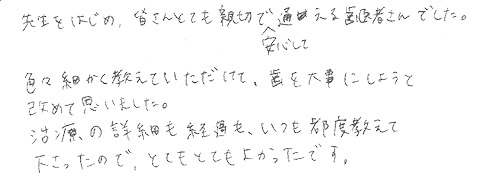 先生をはじめ、皆さんとても親切で安心して通える歯医者さんでした。
色々細かく教えていただけて、歯を大事にしようと
改めて思いました。
治療の詳細も経過も、いつも都度教えて
下さったので、とてもとてもよかったです。